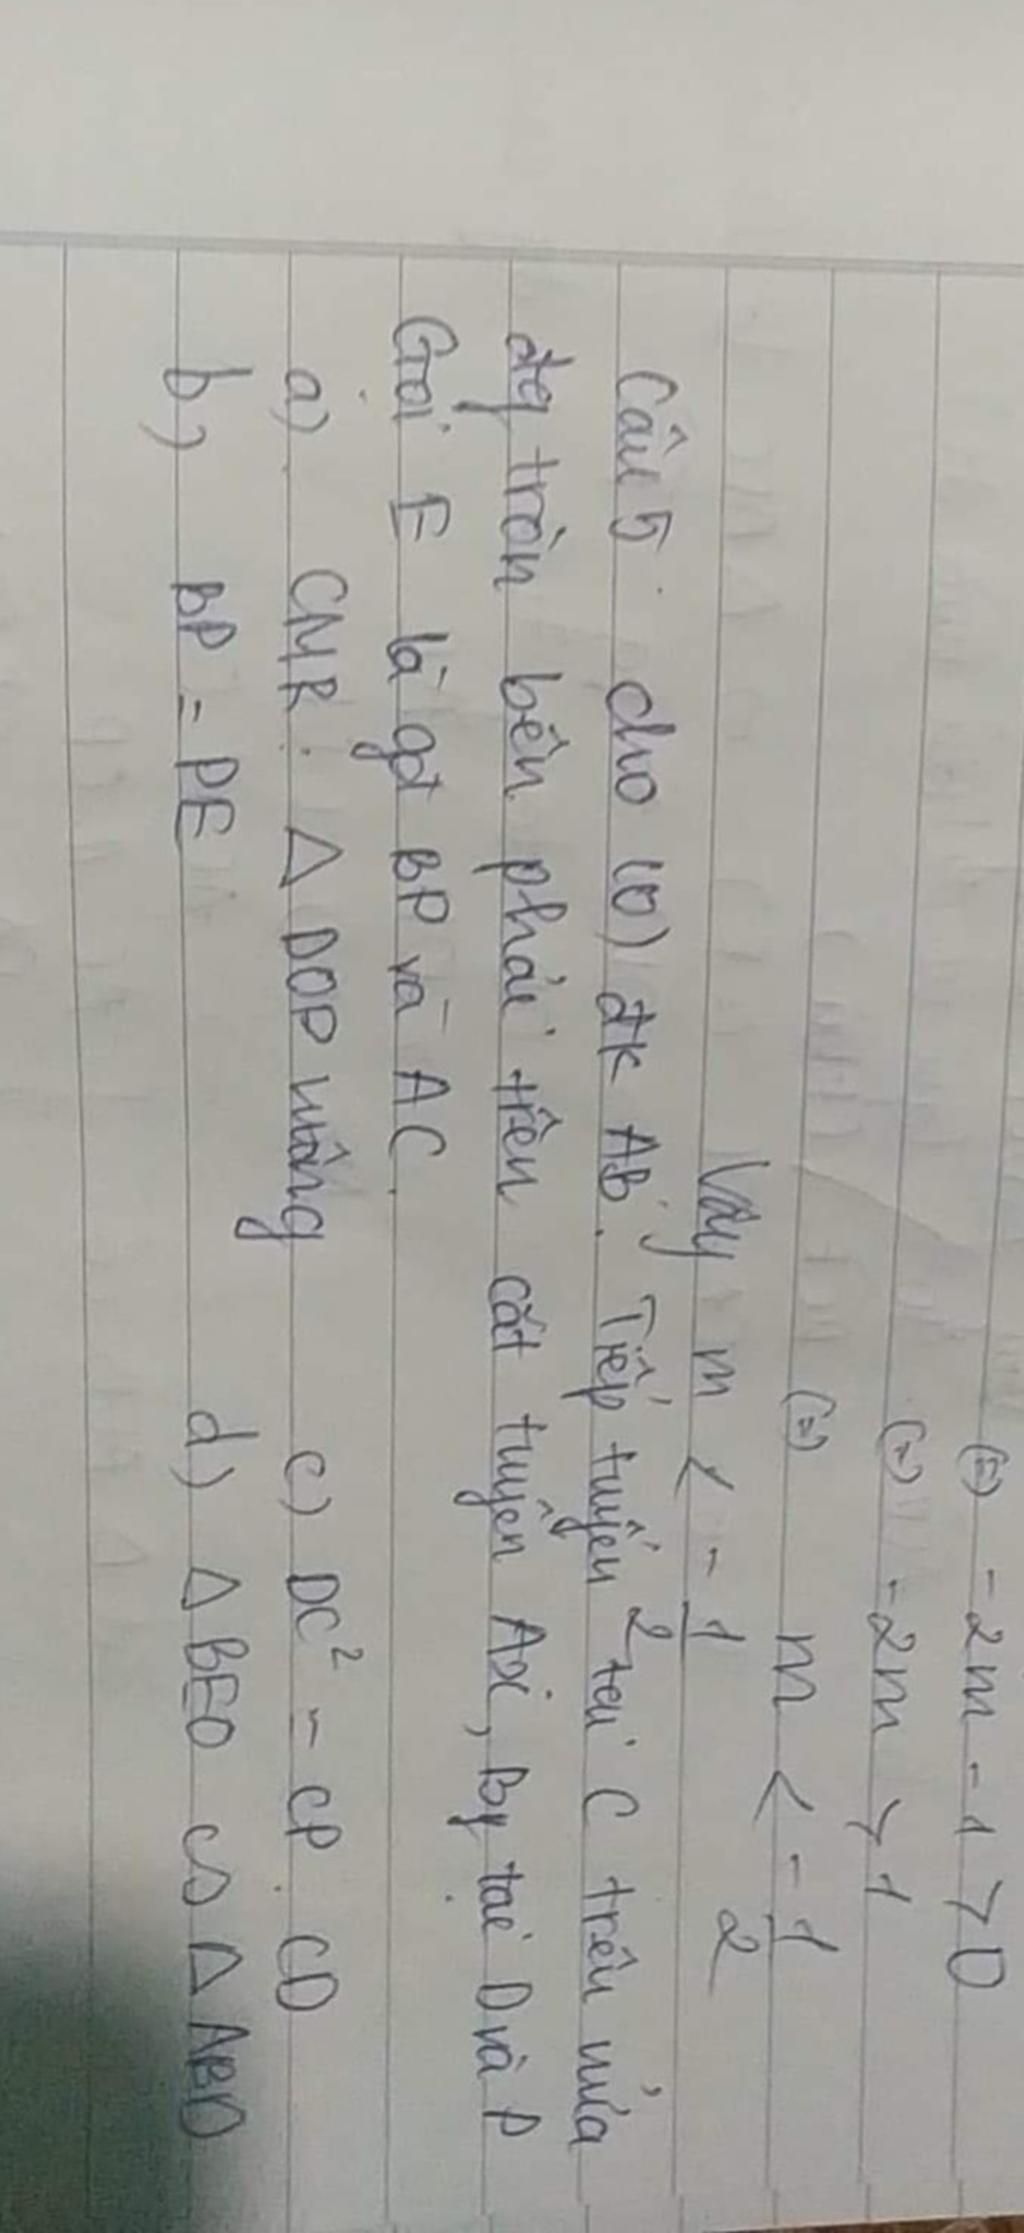 (=) -2m - 1 > 0
(=) -2m > 1
(=) m < -1/2
Vậy m < -1/2
Câu 5. cho (O) đk AB. Tiếp tuyến tại C trên nửa
đg tròn bên phải trên cắt tuyến Ax, By tại D và P
Gọi E là gđ BP và AC.
a) CMR: △ DOP vuông
c) DC² = CP. CD
b) BP = PE
d) △ BEO ∽ △ ABD